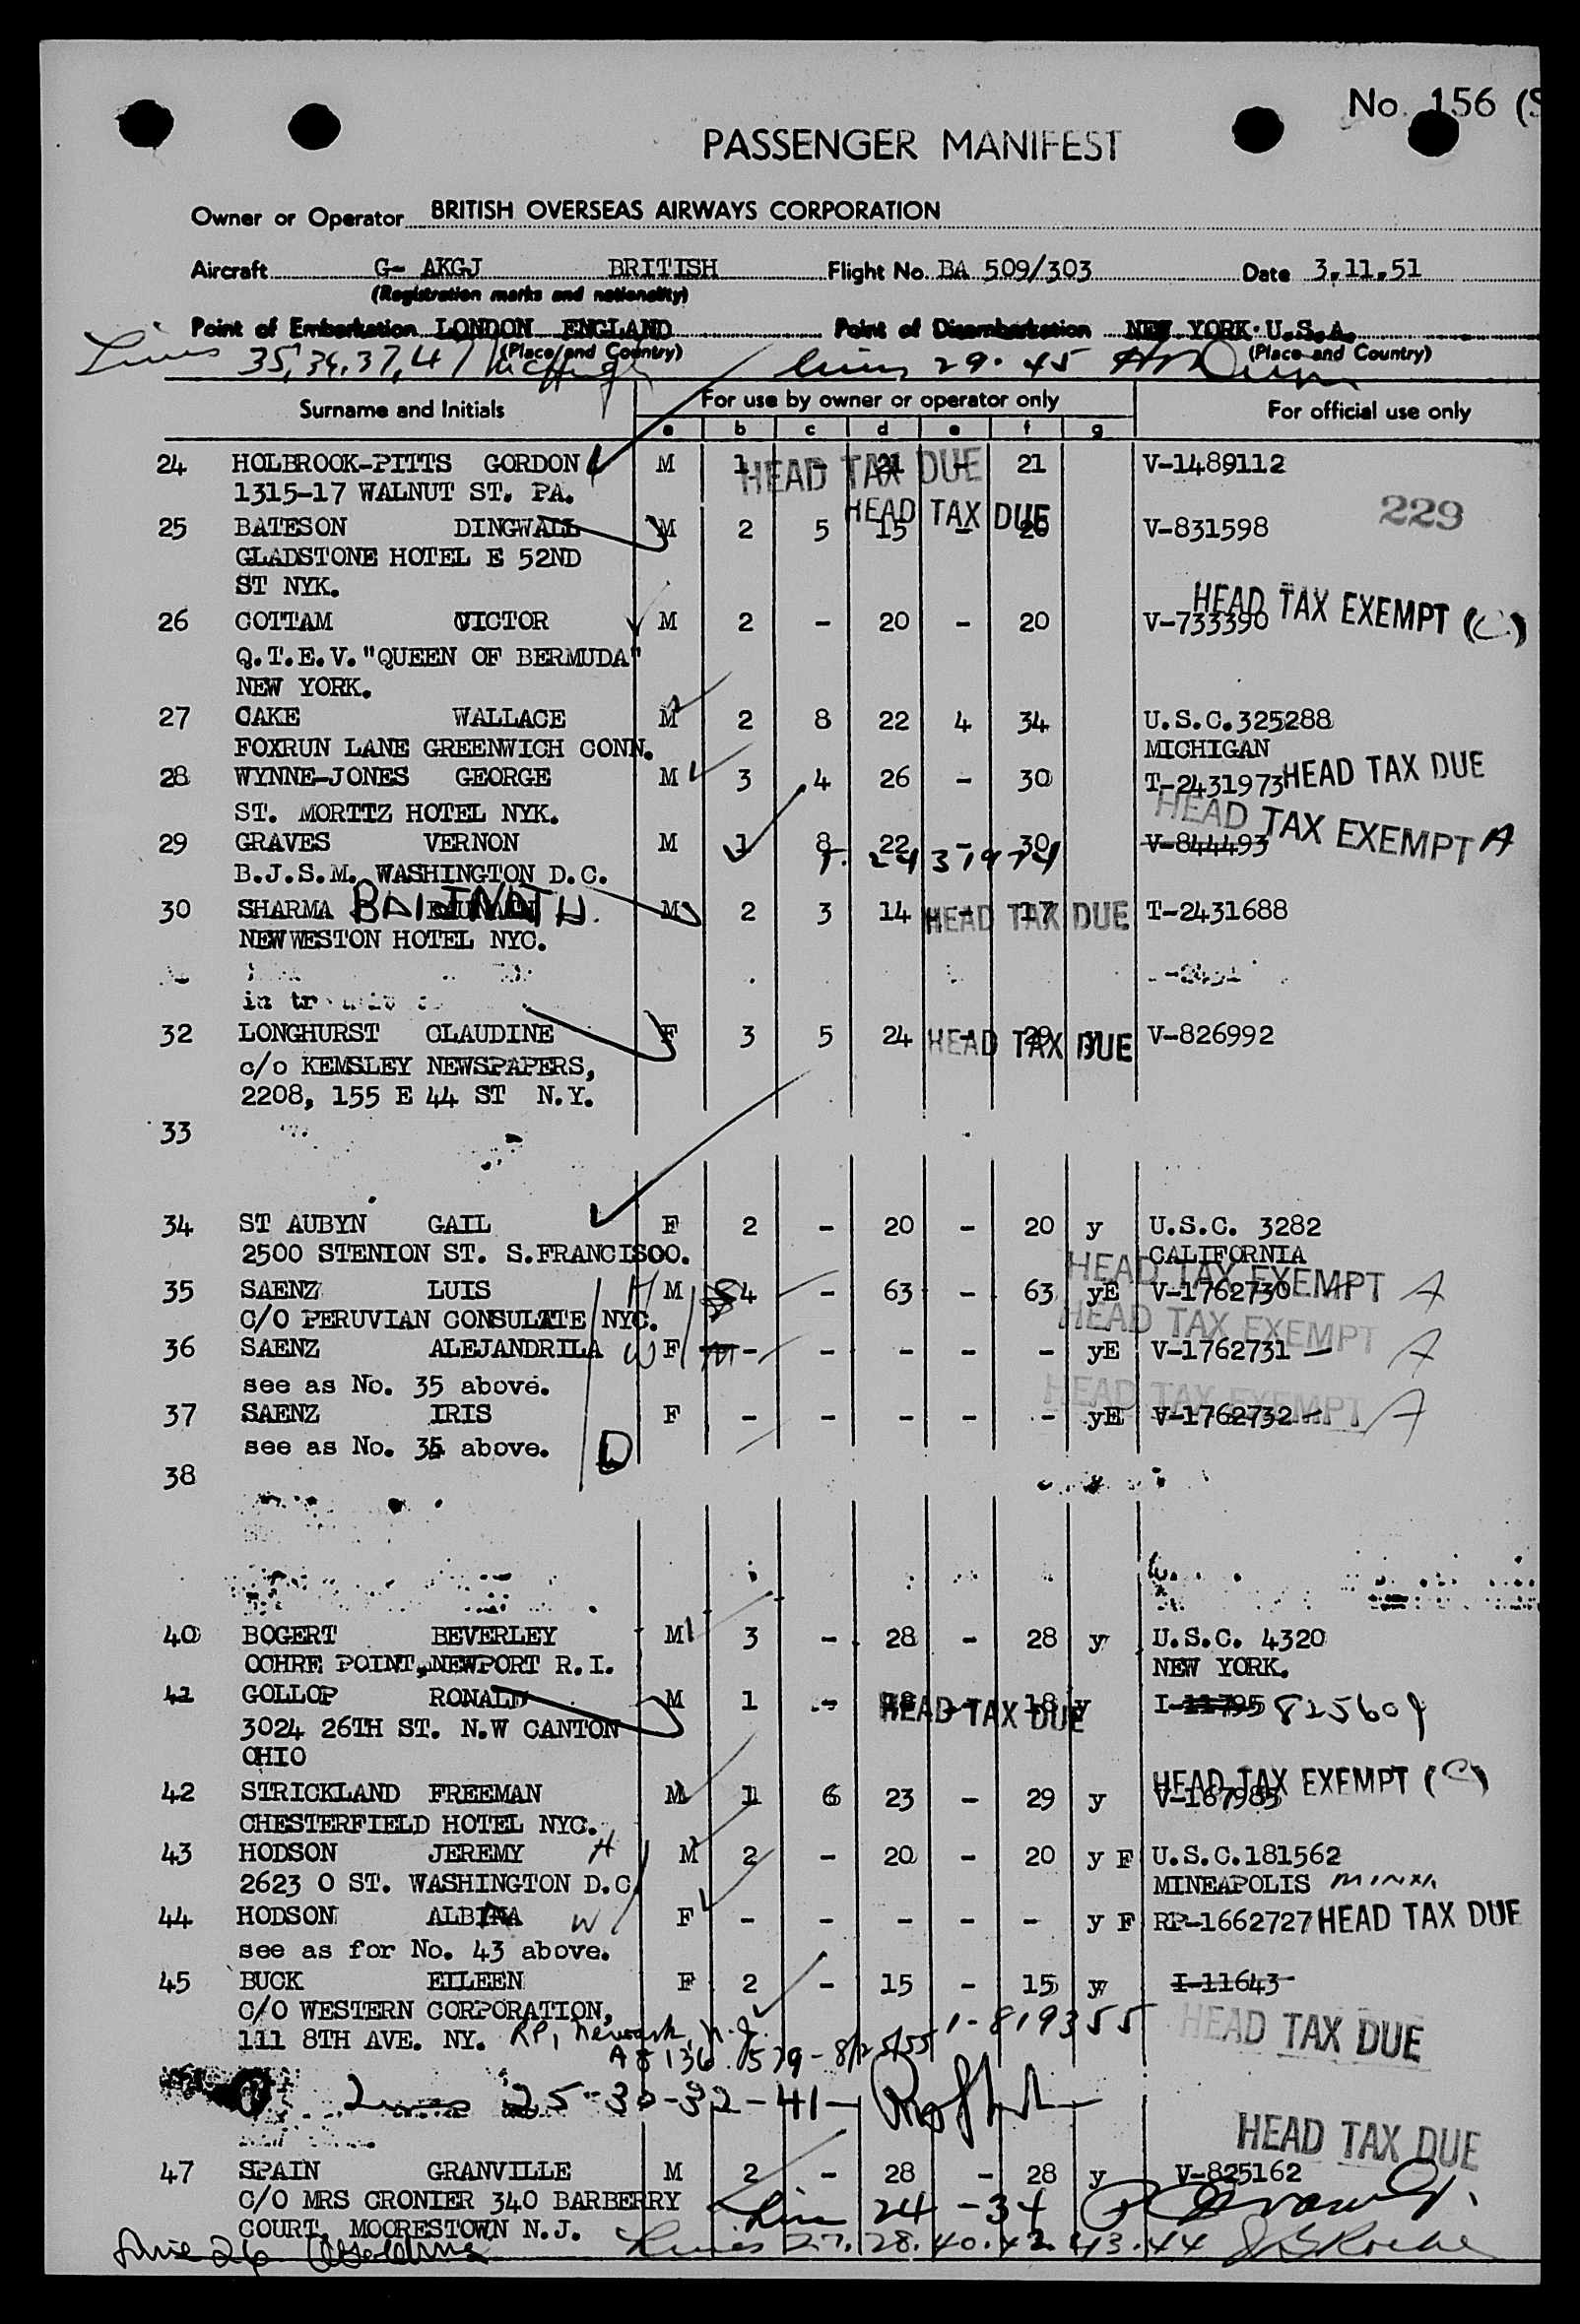 No. 156 (S
PASSENGER MANIFEST
Owner or Operator BRITISH OVERSEAS AIRWAYS CORPORATION
Aircraft G- AKGJ BRITISH Flight No. BA 509/303 Date 3.11.51
(Registration marks and nationality)
Point of Embarkation LONDON ENGLAND Point of Disembarkation NEW YORK U.S.A.
(Place and Country) (Place and Country)
Lines 35, 36, 37, 41 Lines 29. 45
Surname and Initials For use by owner or operator only For official use only
a b c d e f g
24 HOLBROOK-PITTS GORDON M 1 - 21 - 21 V-1489112
HEAD TAX DUE
1315-17 WALNUT ST. PA.
HEAD TAX DUE 229
25 BATESON DINGWALL M 2 5 15 - 20 V-831598
GLADSTONE HOTEL E 52ND
ST NYK.
HEAD TAX EXEMPT (C)
26 COTTAM VICTOR M 2 - 20 - 20 V-733390
Q.T.E.V. "QUEEN OF BERMUDA"
NEW YORK.
27 CAKE WALLACE M 2 8 22 4 34 U.S.C.325288
FOXRUN LANE GREENWICH CONN. MICHIGAN
28 WYNNE-JONES GEORGE M 3 4 26 - 30 T-2431973 HEAD TAX DUE
ST. MORITZ HOTEL NYK.
HEAD TAX EXEMPT A
29 GRAVES VERNON M 1 8 22 - 30 V-844493
T. 2431974
B.J.S.M. WASHINGTON D.C.
30 SHARMA BAIJNATH. M 2 3 14 - 17 T-2431688
HEAD TAX DUE
NEW WESTON HOTEL NYC.
32 LONGHURST CLAUDINE F 3 5 24 - 29 y V-826992
HEAD TAX DUE
c/o KEMSLEY NEWSPAPERS,
2208, 155 E 44 ST N.Y.
33
34 ST AUBYN GAIL F 2 - 20 - 20 y U.S.C. 3282
2500 STENION ST. S.FRANCISCO. CALIFORNIA
HEAD TAX EXEMPT A
35 SAENZ LUIS H M 4 - 63 - 63 yE V-1762730
C/O PERUVIAN CONSULATE NYC.
HEAD TAX EXEMPT A
36 SAENZ ALEJANDRILA W F - - - - - yE V-1762731
see as No. 35 above.
HEAD TAX EXEMPT A
37 SAENZ IRIS F - - - - - yE V-1762732
see as No. 35 above. D
38
40 BOGERT BEVERLEY M 3 - 28 - 28 y U.S.C. 4320
OCHRE POINT, NEWPORT R.I. NEW YORK.
41 GOLLOP RONALD M 1 - 18 - 18 y I-11795 825609
HEAD TAX DUE
3024 26TH ST. N.W CANTON
OHIO
HEAD TAX EXEMPT (C)
42 STRICKLAND FREEMAN M 1 6 23 - 29 y V-167985
CHESTERFIELD HOTEL NYC.
43 HODSON JEREMY H M 2 - 20 - 20 y F U.S.C.181562
2623 O ST. WASHINGTON D.C. MINEAPOLIS MINN.
44 HODSON ALBINA W F - - - - - y F RP-1662727 HEAD TAX DUE
see as for No. 43 above.
45 BUCK EILEEN F 2 - 15 - 15 y I-11643
C/O WESTERN CORPORATION, 1-819355
HEAD TAX DUE
111 8TH AVE. NY. RP, Newark, N.J.
A8 136 579-8/25/55
Lines 25-30-32-41-
HEAD TAX DUE
47 SPAIN GRANVILLE M 2 - 28 - 28 y V-825162
C/O MRS CRONIER 340 BARBERRY
Line 24-34
COURT, MOORESTOWN N.J.
Line 26 Lines 27. 28. 40. 42. 43. 44